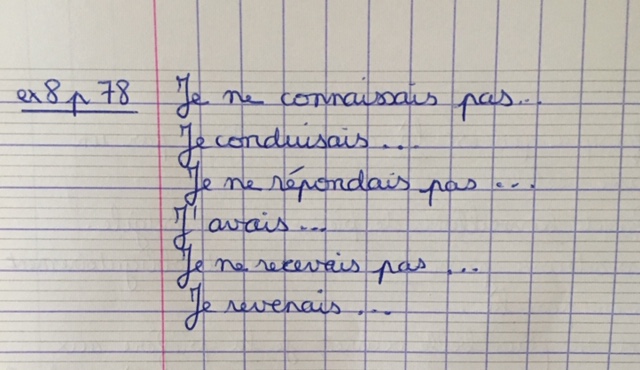 ex 8 p 78 Je ne connaissais pas...
Je conduisais...
Je ne répondais pas ...
J'avais...
Je ne recevais pas ...
Je revenais ...